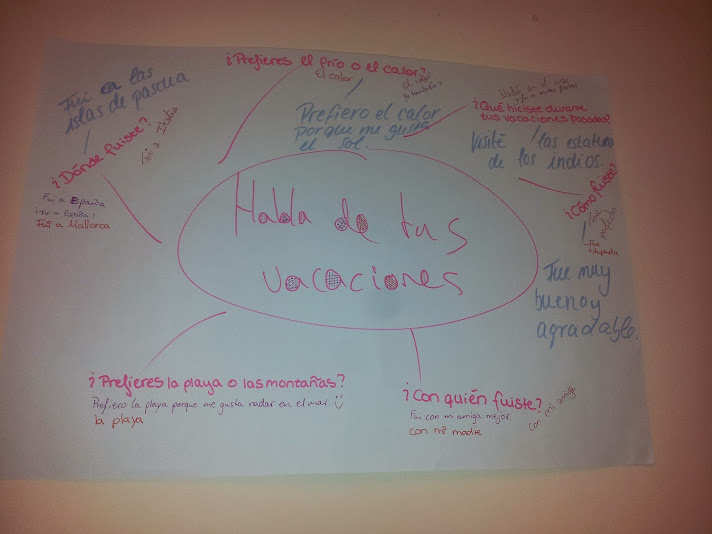 ¿Prefieres el frío o el calor?
El calor
Prefiero el calor
porque me gusta
el sol.
¿Qué hiciste durante
tus vacaciones pasadas?
Visité las estatuas
de los indios.
¿Cómo fuiste?
Fue perfecto
Fue muy
bueno y
agradable.
Fui en las
islas de pascua
¿Dónde fuiste?
Fui a Italia
Fui a España
¡Fui a España!
Fui a Mallorca
Habla de tus
vacaciones
¿Prefieres la playa o las montañas?
Prefiero la playa porque me gusta nadar en el mar.
la playa
¿Con quién fuiste?
Fui con mi amiga mejor.
con mi madre
con mi amiga